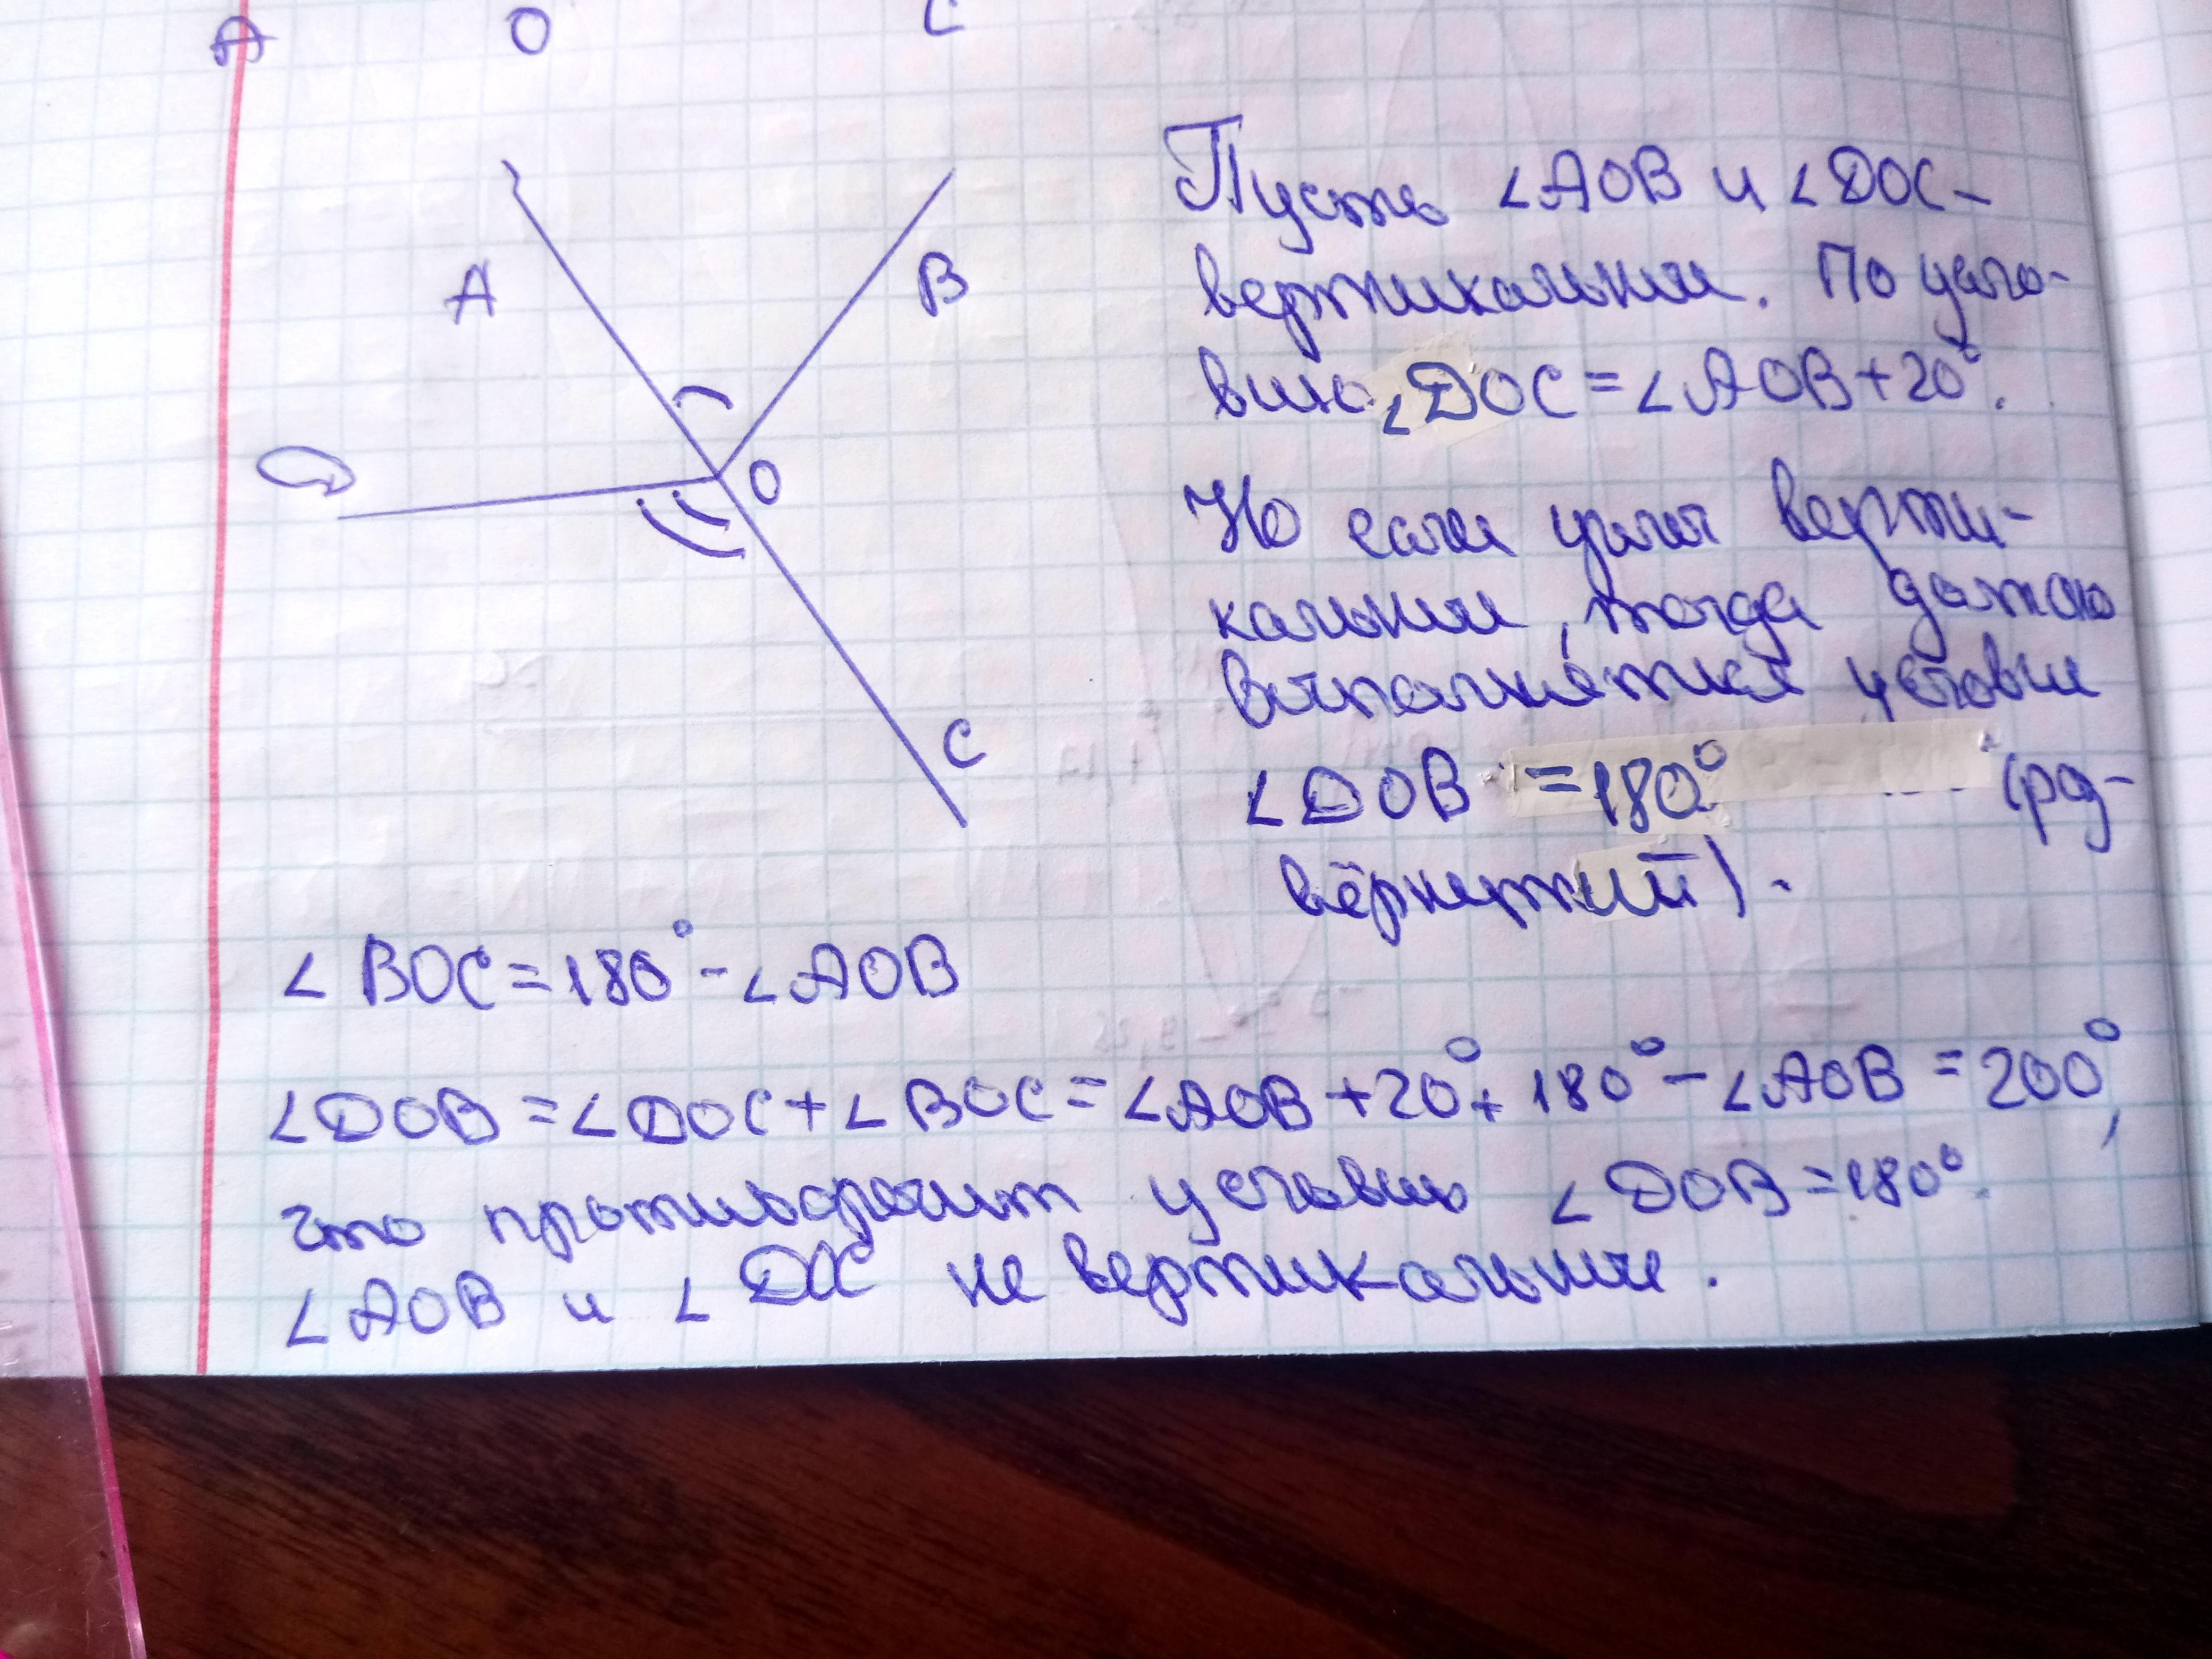 A O C
A
B
D
O
C
Пусть ∠AOB и ∠DOC –
вертикальные. По усло-
вию ∠DOC = ∠AOB + 20°.
Но если углы верти-
кальные, тогда должно
выполняться условие
∠DOB = 180° (рз-
вёрнутый).
∠BOC = 180° - ∠AOB
∠DOB = ∠DOC + ∠BOC = ∠AOB + 20° + 180° - ∠AOB = 200°,
что противоречит условию ∠DOB = 180°.
∠AOB и ∠DOC не вертикальные.